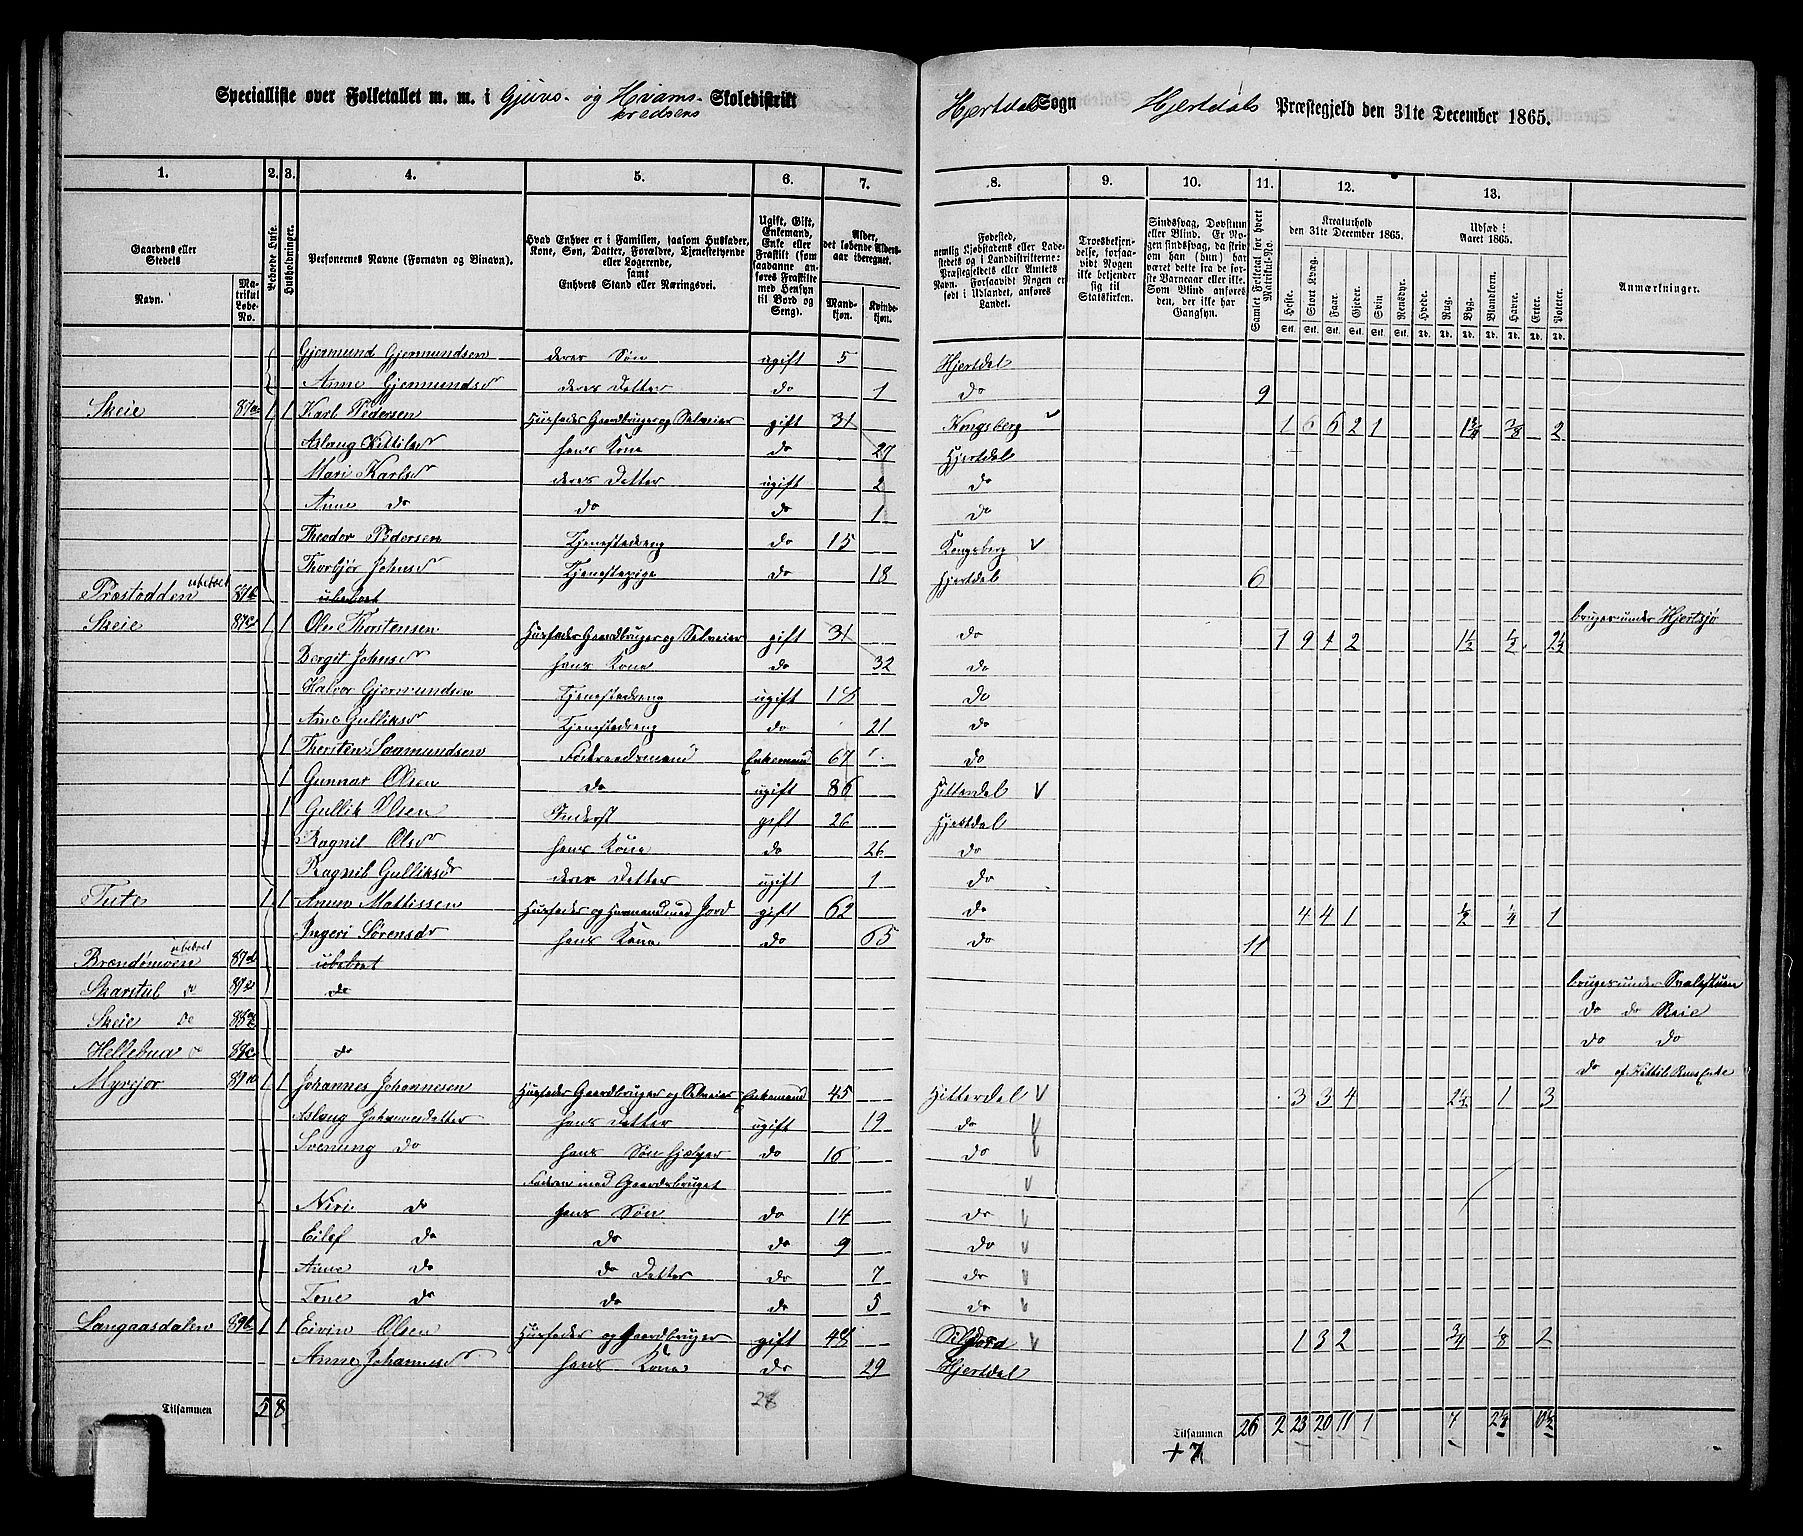 Specialliste over Folketallet m. m. i Gjuvs- og Hvams- Skoledistrikt
kredsens
Hjertdal Sogn Hjertdals Præstegjeld den 31te December 1865.
1. 2. 3. 4. 5. 6. 7. 8. 9. 10. 11. 12. 13.
Gaardens eller Stedets
Navn.
Matrikul Løbe-No.
Beboede Huse.
Husholdninger.
Personernes Navne (Fornavn og Binavn).
Hvad Enhver er i Familien, saasom Husfader, Kone, Søn, Datter, Forældre, Tjenestetyende eller Logerende,
samt
Enhvers Stand eller Næringsvei.
Ugift, Gift, Enkemand, Enke eller Fraskilt (som saadanne anføres Fraskilte med Hensyn til Bord og Seng).
Alder, det løbende Alders-aar iberegnet.
Mandkjøn. Kvindekjøn.
Fødested, nemlig Kjøbstadens eller Ladestedets og i Landdistrikterne: Præstegjeldets eller Amtets Navn. Forsaavidt Nogen er født i Udlandet, anføres Landet.
Troesbekjendelse, forsaavidt Nogen ikke bekjender sig til Statskirken.
Sindssvag, Døvstum eller Blind. Er Nogen sindssvag, da skrives om han (hun) har været dette fra de første Barneaar eller ikke. Som Blind anføres den, der ikke har Gangsyn.
Samlet Folketal for hvert Matrikul-No.
Kreaturhold den 31te December 1865.
Heste. Stort Kvæg. Faar. Gjeder. Svin Rensdyr.
Udsæd i Aaret 1865.
Hvede. Rug. Byg. Blandkorn. Havre. Erter. Poteter.
Anmærkninger.
Gjermund Gjermundsen deres Søn ugift 5 Hjertdal
Anne Gjermundsd deres Datter do 1 do 9
Skeie 87a 1 1 Karl Pedersen Husfader Gaardbruger og Selveier gift 31 Kongsberg 1 6 6 2 1 1 3/4 3/8 2
Aslaug Kittilsd hans Kone do 27 Hjertdal
Mari Karlsd deres Datter ugift 2 do
Anne do do do 1 do
Theodor Pedersen Tjenestedreng do 15 Kongsberg
Thorbjør Johnsd Tjenestepige do 18 Hjertdal 6
Præstodden ubeboet 87b ubeboet bruges under Hjertsjø
Skeie 87c 1 1 Ole Thorstensen Husfader Gaardbruger og Selveier gift 31 do 1 9 4 2 1 1/2 1/2 2 1/2
Bergit Johnsd hans Kone do 32 do
Halvor Gjermundsen Tjenestedreng ugift 18 do
Anne Gulliksd Tjenestedreng do 21 do
1 Thorsten Saamundsen Føderaadsmand Enkemand 67 do
1 Gunnar Olsen do ugift 86 Hitterdal
1 Gullik Olsen Inderst gift 26 Hjertdal
Ragnil Olsd hans Kone do 26 do
Ragnil Gulliksd deres Datter ugift 1 do
Tuto 1 1 Anun Mattissen Husfader og Husmand med Jord gift 62 do 4 4 1 1/2 1/4 1
Ingeri Sørensd hans Kone do 65 do 11
Brændemoen ubeboet 87d ubeboet bruges under
Skarstul do 87e do do do Skeie
Skeie do do do
Hellebua do do do af Kittil
Myrejor 89a 1 1 Johannes Johannesen Husfader Gaardbruger og Selveier Enkemand 45 Hitterdal 3 3 4 2 1/4 1 3
Aslaug Johannesdatter hans Datter ugift 19 do
Svenung do hans Søn hjælper do 16 do
Faderen med Gaardsbruget
Niri do hans Søn do 14 do
Eilef do do do 9 do
Anne do do Datter do 7 do
Tone do do do 5 do
Langaasdalen 89b 1 1 Eivin Olsen Husfader og Gaardbruger gift 48 Sillejord 1 3 2 3/4 1/8 2
Anne Johannesd hans Kone do 29 Hjertdal
Tilsammen 5 8 28 Tilsammen 26 2 23 20 11 1 7 2 1/4 10 1/2
+7